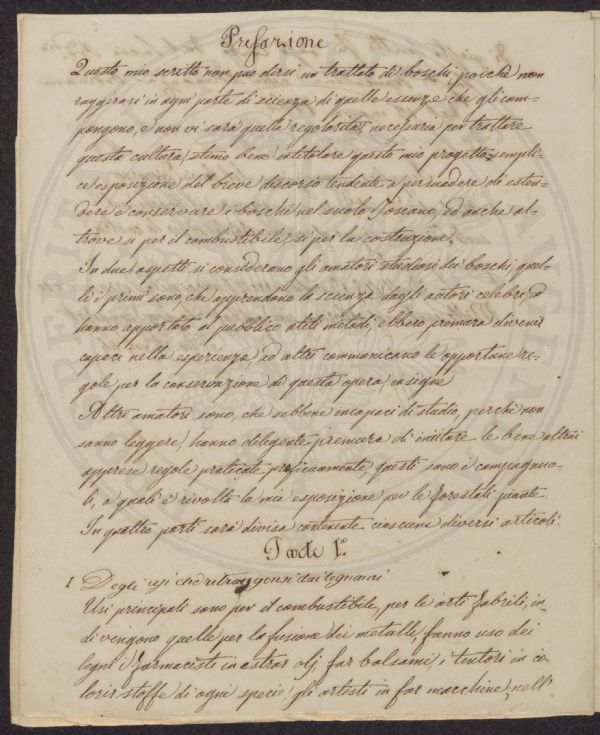 Prefazione
Questo mio scritto non può dirsi un trattato di boschi, poichè non
raggirasi in ogni parte di scienza di quelle essenze che gli com-
pongono, e non vi sarà quella regolarità necessaria per trattare
questa cultura, stimo bene intitolare questo mio progetto sempli-
ce esposizione del breve discorso tendente a persuadere di esten-
dere e conservare i boschi nel suolo Toscano, ed anche al-
trove si per il combustibile, si per la costruzione.
In due aspetti si considerano gli amatori studiosi dei boschi, quel-
li i primi sono, che apprendono la scienza dagli autori celebri, e
hanno apportato al pubblico utili metodi, ebbero premura divenir
capaci nella esperienza, ed altri communicano le opportune re-
gole per la conservazione di questa opera insigne
Altri amatori sono, che sebbene incapaci di studio, perchè non
sanno leggere, hanno deligente premura di imitare le bene altrui
apprese regole praticate proficuamente, questi sono i campagnuo-
li, a quali è rivolta la mia esposizione per le forestali piante.
In quattro parti sarà divisa contenente ciascuna diversi articoli.
Parte 1ª
1 Degli usi che ritraggonsi dai legnami
Usi principali sono per il combustibile, per le arti fabrili, in-
di vengono quelle per la fusione dei metalli, fanno uso dei
legni i farmacisti in estrar olj, far balsami, i tentori in co-
lorir stoffe di ogni specie, gli artisti in far macchine, nell'